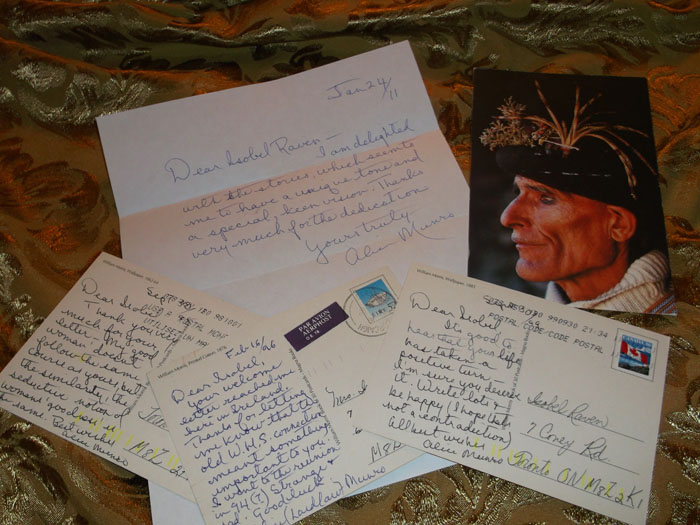 Jan 24/11
Dear Isobel Raven —
I am delighted
with the stories, which seem to
me to have a unique tone and
a special, keen vision. Thanks
very much for the dedication
Yours truly
Alice Munro
William Morris, Wallpaper,
Sept
Dear Isobel
Thank you very
much for your
letter. My good
woman doesn't
follow the same
course as yours, but
the similarity, the
seductive notion of
womanly good is
the same.
Best wishes
Alice Munro
William Morris, Printed Cotton,
Feb 16/96
Dear Isobel,
Your welcome
letter reached me
here in Ireland.
Thanks for letting
me know that the
old W.H.S. connection
meant something
important to you.
I went to the reunion
in 94(?) Strange &
Good luck
(Laidlaw) Munro
PAR AVION
AERPHOST
William Morris, Wallpaper,
990930 21:34
POSTAL CODE/CODE POSTAL
Dear Isobel
It's good to
hear that your life
has taken a
positive turn —
I'm sure you deserve
it. Write lots &
be happy (I hope that's
not a contradiction)
All best wishes
Alice Munro
Isobel Raven
7 Coney Rd
Toronto ON M8Z 2K1